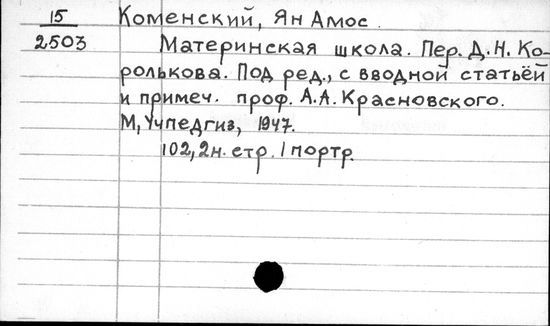 15 Коменский, Ян Амос.
2503 Материнская школа. Пер. Д.Н. Ко-
ролькова. Под ред., с вводной статьёй
и примеч. проф. А.А. Красновского.
М, Учпедгиз, 1947.
102, 2н. стр. 1 портр.